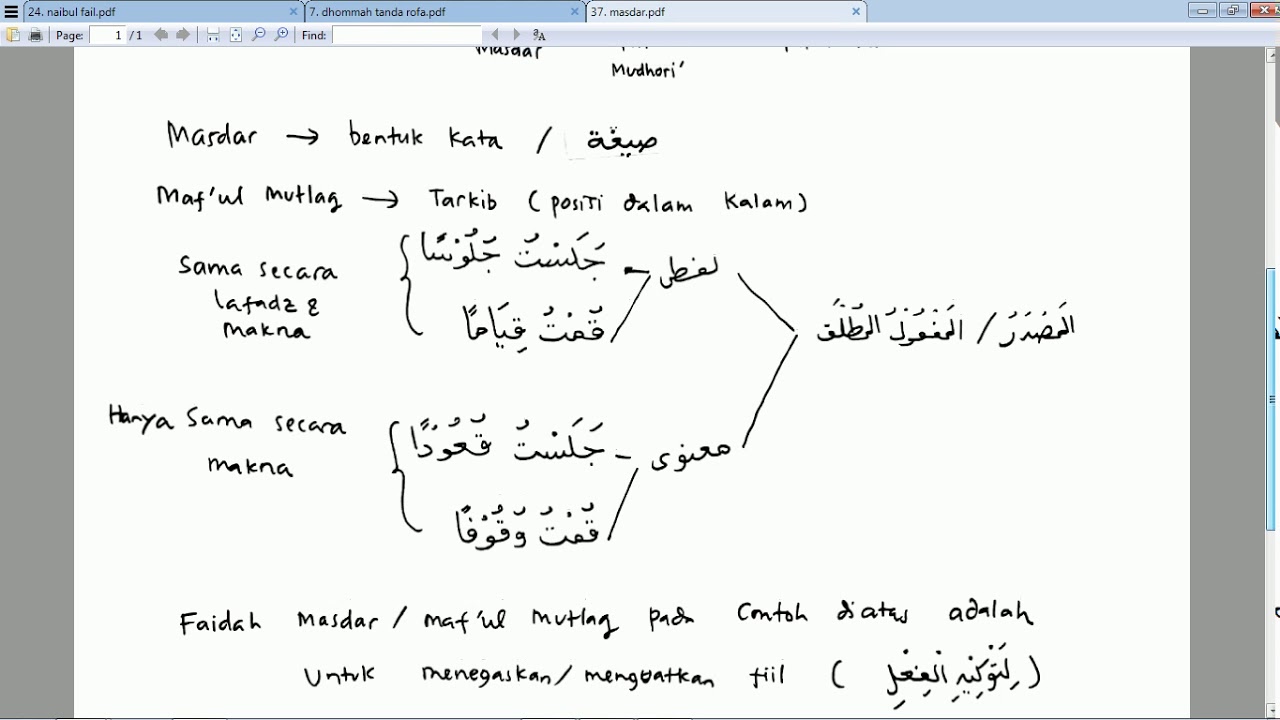 24. naibul fail.pdf 7. dhommah tanda rofa.pdf 37. masdar.pdf
Page: 1 / 1 Find:
Masdar
Mudhori'
Masdar → bentuk kata / صيغة
Maf'ul mutlaq → Tarkib (positi dalam kalam)
Sama secara lafadz & makna
جَلَسْتُ جُلُوْسًا
قُمْتُ قِيَامًا
لفظى
المَصْدَرُ / المَفْعُوْلُ المُطْلَقُ
Hanya Sama secara makna
جَلَسْتُ قُعُوْدًا
قُمْتُ وُقُوْفًا
معنوى
Faidah Masdar / maf'ul mutlaq pada Contoh diatas adalah
Untuk menegaskan/menguatkan fiil (لِتَوْكِيْدِ الْفِعْلِ)